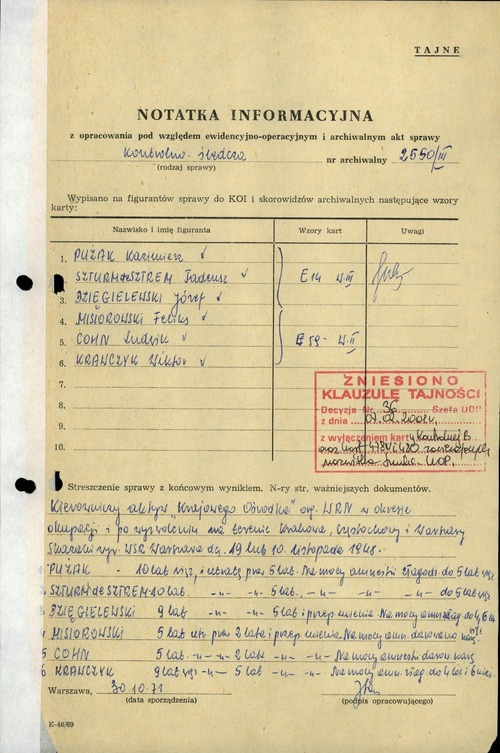 TAJNE
NOTATKA INFORMACYJNA
z opracowania pod względem ewidencyjno-operacyjnym i archiwalnym akt sprawy
kontrolno-śledcza nr archiwalny 2550/III
(rodzaj sprawy)
Wypisano na figurantów sprawy do KOI i skorowidzów archiwalnych następujące wzory
karty:
Nazwisko i imię figuranta Wzory kart Uwagi
1. PUŻAK Kazimierz
2. SZTURMdeSZTREM Tadeusz E14 W.III
3. DZIĘGIELEWSKI Józef
4. MISIOROWSKI Feliks
5. COHN Ludwik E59- W.II
6. KRAWCZYK Wiktor
7.
8.
9.
10.
ZNIESIONO
KLAUZULĘ TAJNOŚCI
Decyzja Nr 36 Szefa UOP
z dnia
z wyłączeniem karty kontrolnej B
oraz kart
UOP.
Streszczenie sprawy z końcowym wynikiem. N-ry str. ważniejszych dokumentów.
Kierowniczy aktyw "Krajowego Ośrodka" org. WRN w okresie
okupacji i po wyzwoleniu na terenie Krakowa, Częstochowy i Warszawy
Skazani wyr. WSR Warszawa dn. 19 lub 10. listopada 1948.
1 PUŻAK - 10 lat więz. i utratę praw 5 lat. Na mocy amnestii złagodz. do 5 lat więz
2 SZTURMdeSZTREM-10 lat -"- -"- 5 lat, -"- -"- do 5 lat więz
3 DZIĘGIELEWSKI 9 lat -"- -"- 5 lat i przep. mienia. Na mocy amn. złag. do
4 MISIOROWSKI 5 lat utr. praw 2 lata i przep. mienia. Na mocy amn. darowano karę
5 COHN 5 lat -"- -"- 2 lata -"- -"- Na mocy amnestii darow. karę
6 KRAWCZYK 9 lat więz -"- 5 lat -"- Na mocy amn. złag. do 4 lat i 6 mies.
Warszawa, 30.10.71
(data sporządzenia) (podpis opracowującego)
E-46/69